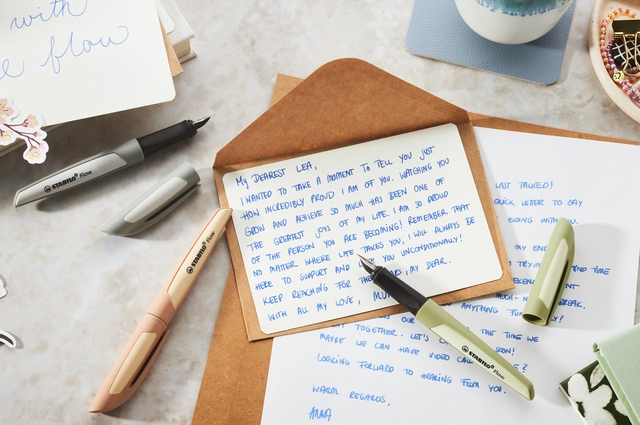 with
flow
STABILO flow
STABILO flow
My DEAREST LEA,
I WANTED TO TAKE A MOMENT TO TELL YOU JUST
HOW INCREDIBLY PROUD I AM OF YOU. WATCHING YOU
GROW AND ACHIEVE SO MUCH HAS BEEN ONE OF
THE GREATEST JOYS OF MY LIFE. I AM SO PROUD
OF THE PERSON YOU ARE BECOMING! REMEMBER THAT
NO MATTER WHERE LIFE TAKES YOU, I WILL ALWAYS BE
HERE TO SUPPORT AND LOVE YOU UNCONDITIONALLY!
KEEP REACHING FOR THE STARS, MY DEAR.
WITH ALL MY LOVE,
STABILO flow
LAST TALKED!
QUICK LETTER TO SAY
GOING WITH YOU.
MY
TIME
BREAK.
TOGETHER. LET'S THE TIME WE
MAYBE WE CAN HAVE VIDEO CALL SOON!
LOOKING FORWARD TO HEARING FROM YOU.
WARM REGARDS,
ANNA